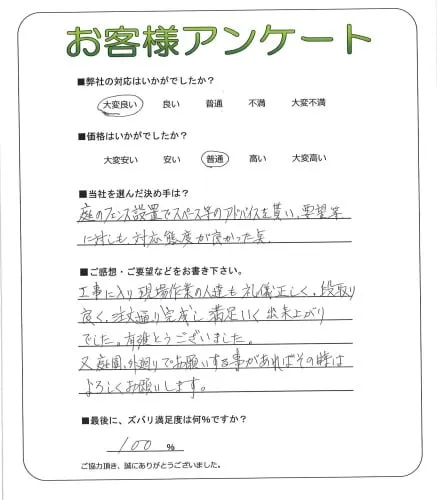 お客様アンケート
■弊社の対応はいかがでしたか?
大変良い 良い 普通 不満 大変不満
■価格はいかがでしたか?
大変安い 安い 普通 高い 大変高い
■当社を選んだ決め手は?
庭のフェンス設置でスペース等のアドバイスを貰い、要望等
に対しも、対応態度が良かった矣、
■ご感想・ご要望などをお書き下さい。
工事に入り現場作業の人達も礼儀正しく、段取り
良く、注文通り完成し満足いく出来上がり
でした。有難とうございました。
又庭園、外廻りでお願いする事があればその時は
よろしくお願いします。
■最後に、ズバリ満足度は何%ですか?
100 %
ご協力頂き、誠にありがとうございました。